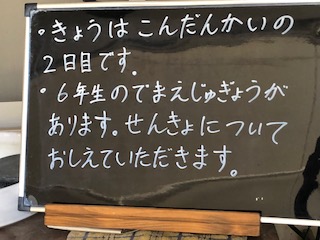 ・きょうは こんだんかいの
２日目です。
・６年生のでまえじゅぎょうが
あります。せんきょについて
おしえていただきます。